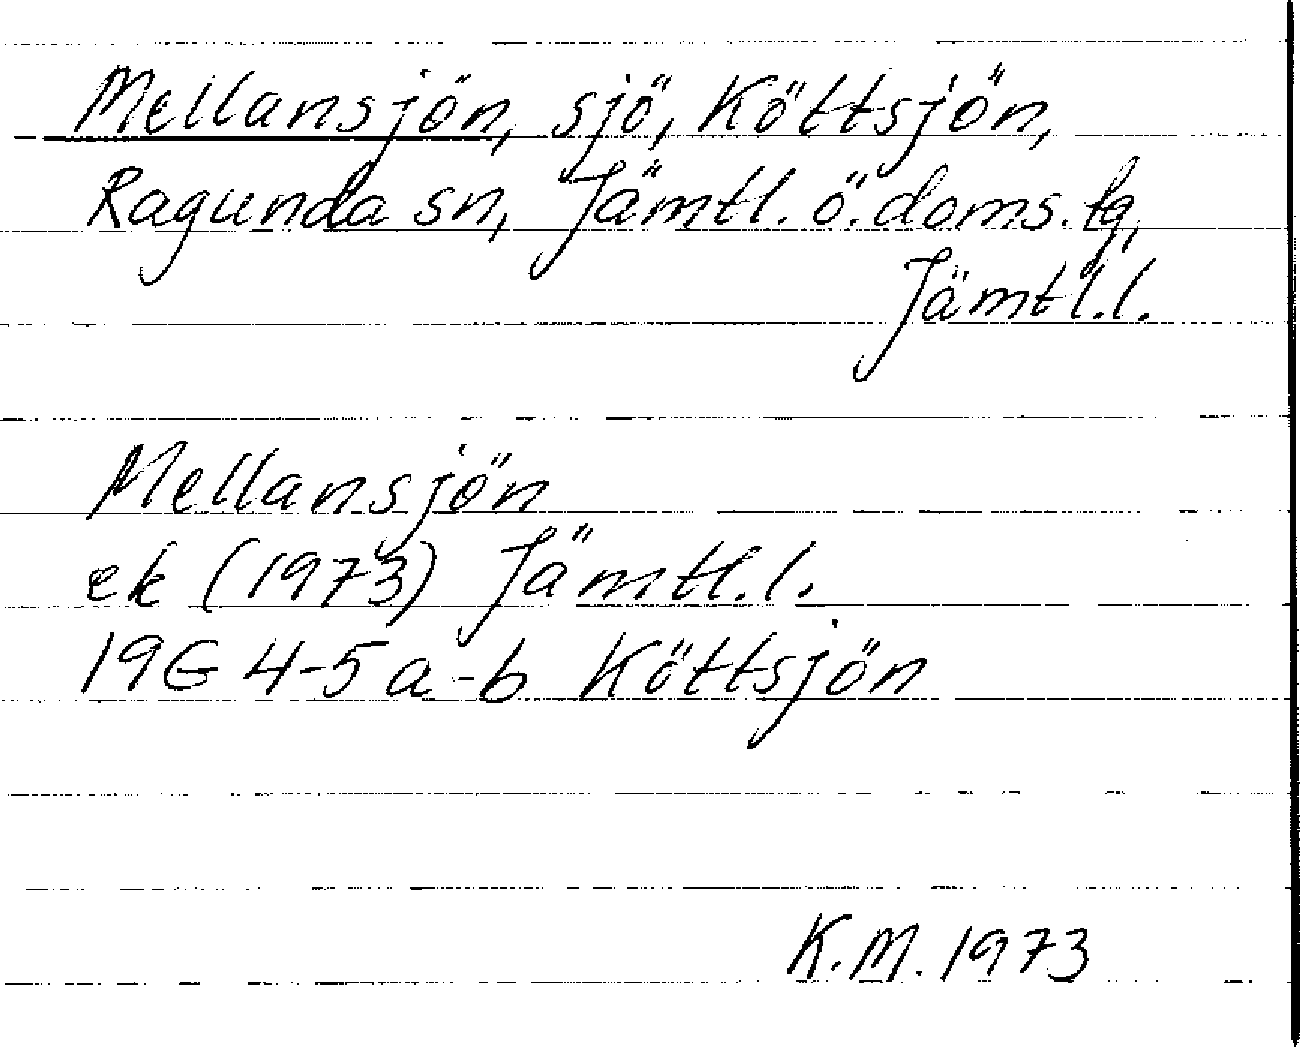 Mellansjön, sjö, Köttsjön,
Ragunda sn, Jämtl. ö. doms. tg,
Jämtl.l.
Mellansjön
ek (1973) Jämtl.l.
19G 4-5 a-b Köttsjön
K.M. 1973